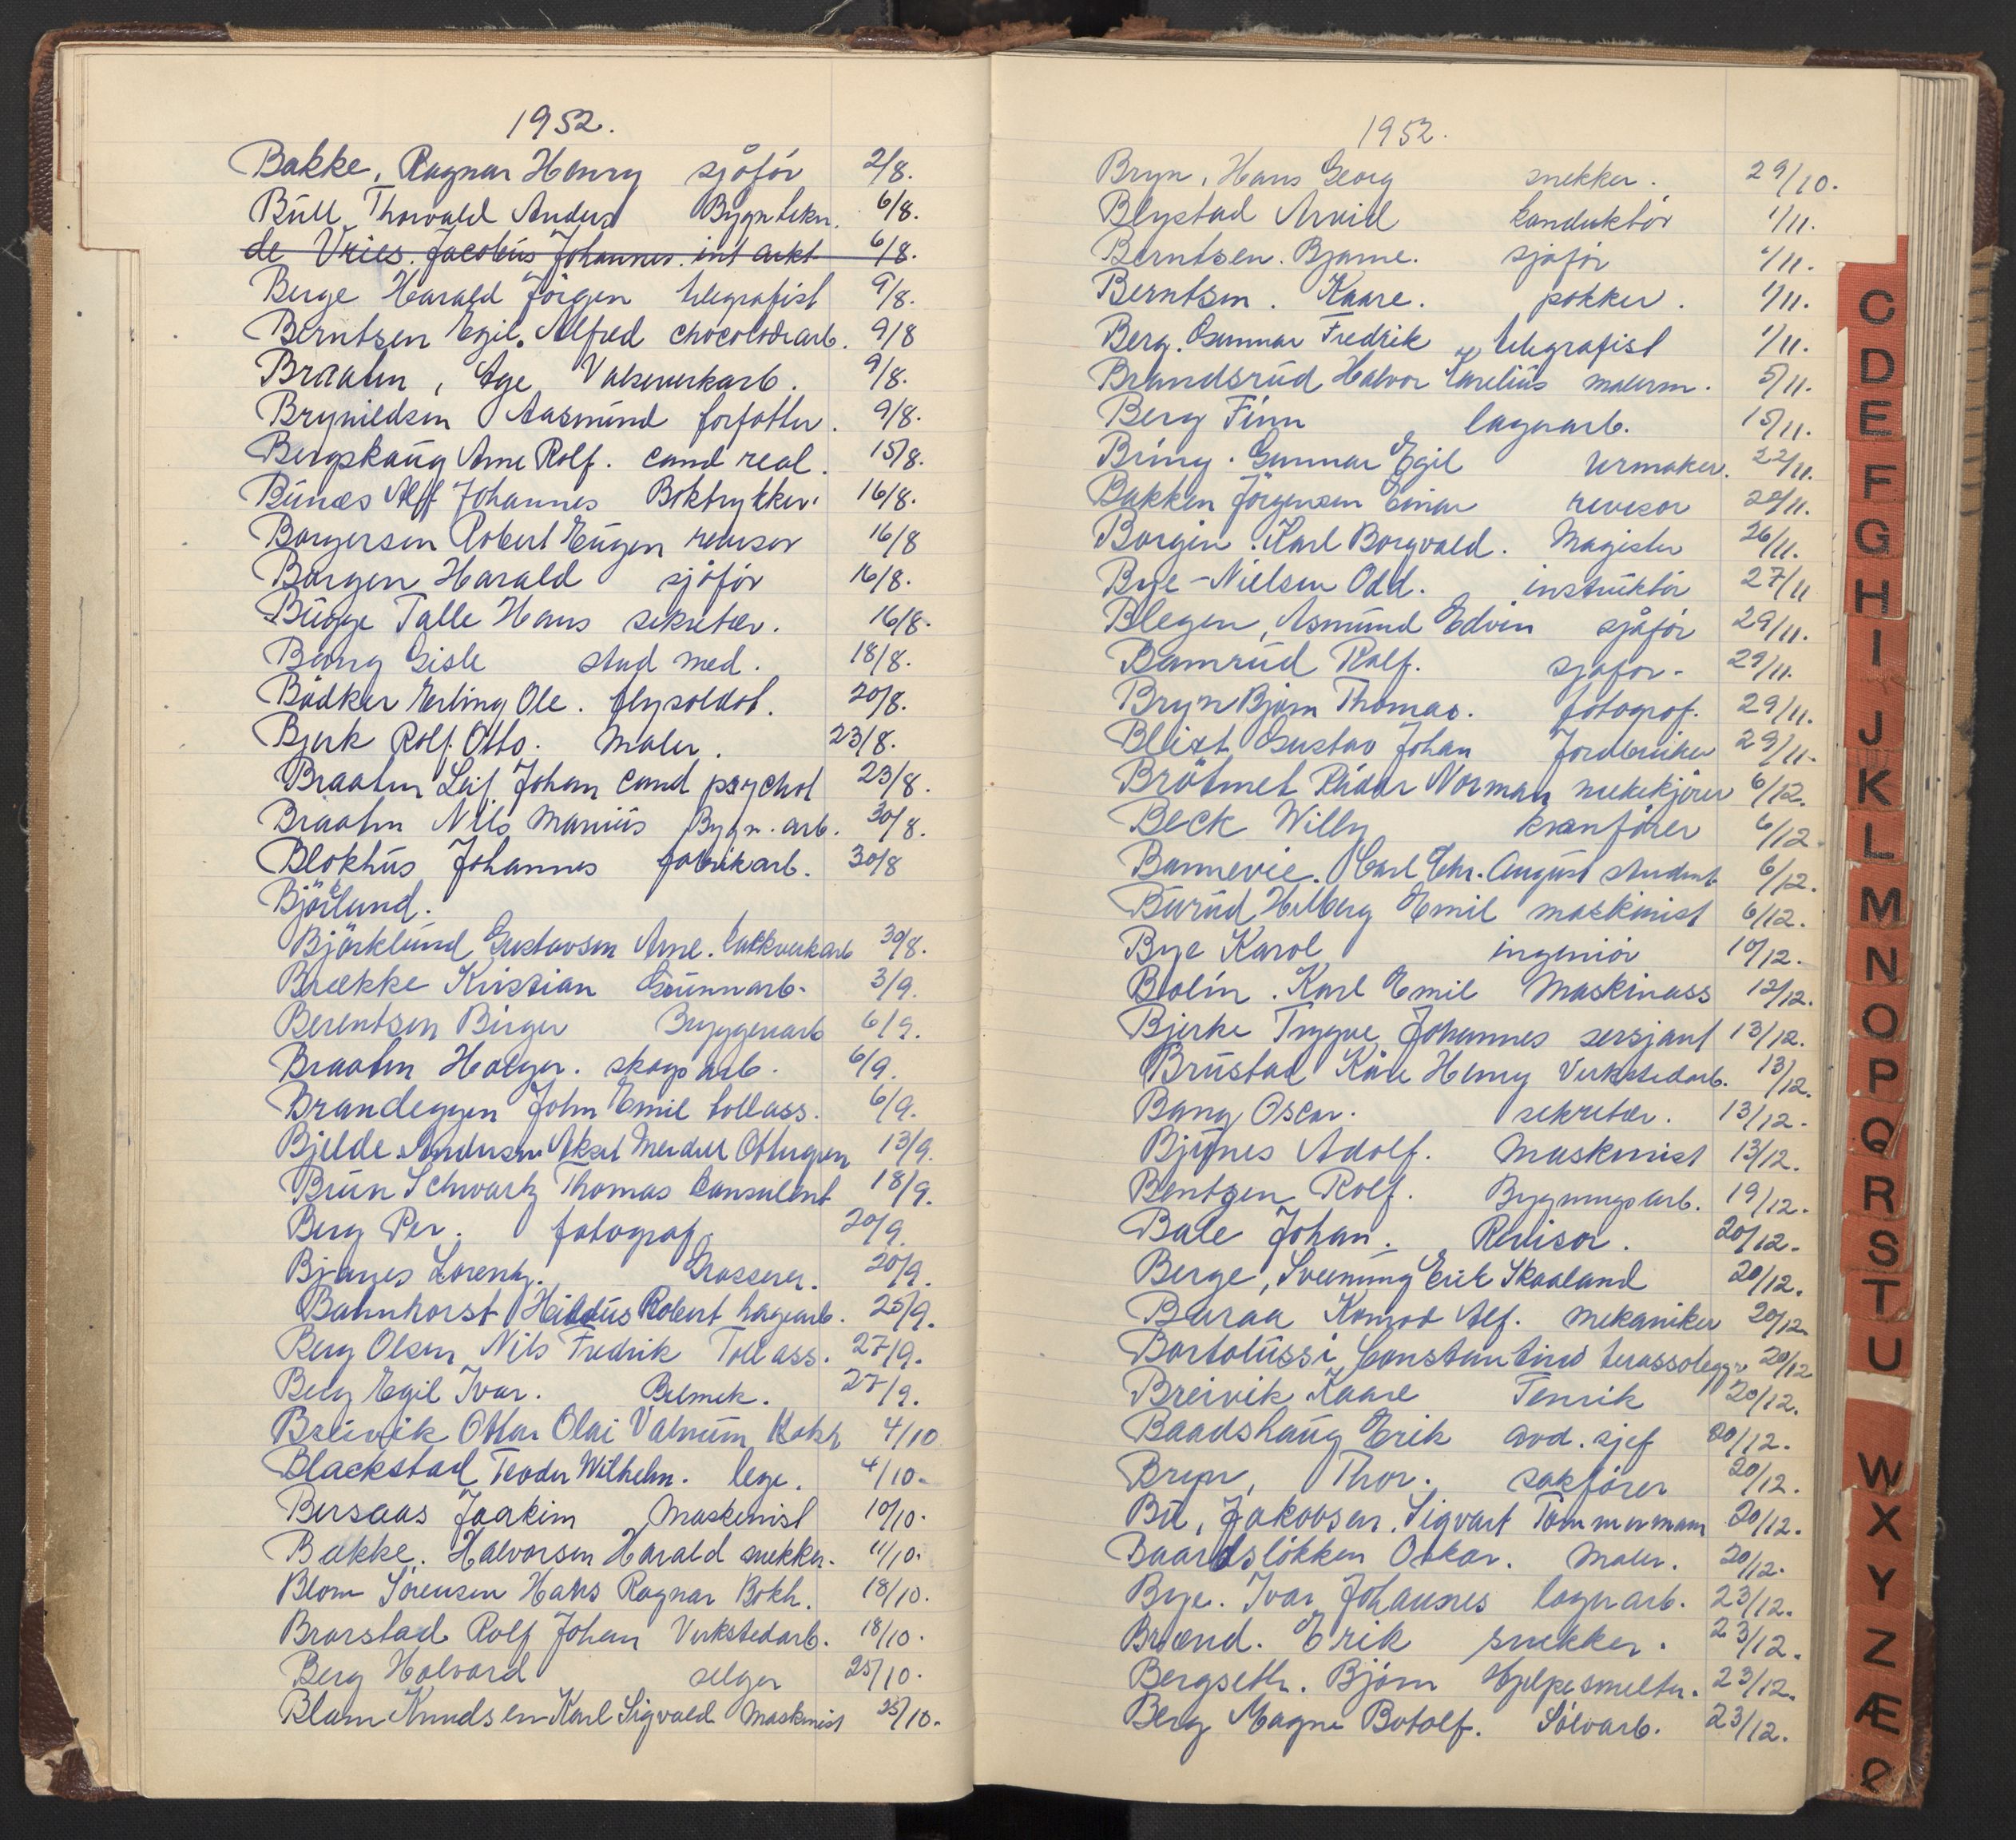 1952.
Bakke, Ragnar Henry sjåfør 2/8.
Büll, Thorvald Anders Bygn tekn. 6/8.
de Vries. Jacobüs Johannes. int arkt 6/8.
Berge Harald Jörgen telegrafist 9/8.
Berntsen Egil. Alfred chocoladearb. 9/8
Braaten, Åge Valseverkarb. 9/8.
Brynildsen Aasmünd forfatter. 9/8.
Bergskaüg Arne Rolf. cand real. 15/8.
Bünæs Alf Johannes Boktrykker. 16/8.
Borgersen Robert Eügen revisor 16/8
Borgen Harald sjåför 16/8.
Bügge Talle Hans sekretær. 16/8.
Bang Gisle stud med. 18/8.
Bödker Erling Ole. flysoldat. 20/8.
Bjerk Rolf. Otto. Maler. 23/8.
Braaten Leif Johan cand psychol 23/8.
Braaten Nils Mariüs Bygn. arb. 30/8.
Blokhüs Johannes fabrikarb. 30/8
Björlund.
Björklünd Gustavsen Arne. Lakkverkarb 30/8.
Brække Kristian Gümmarb. 3/9.
Berentsen Birger Bryggeriarb 6/9.
Braaten Holger. skogsarb. 6/9.
Brandeggen John Emil tollass. 6/9.
Bjelde Andersen Aksel Mendel Ottugsen 13/9.
Brün Schwartz Thomas Consulent 18/9.
Berg Per. fotograf. 20/9.
Bjanes Lorentz. Grosserer. 20/9.
Bahnhorst Robert hagearb. 25/9.
Berg Olsen Nils Fredrik Toll ass. 27/9.
Berg Egil Ivar. Bilmek. 27/9.
Breivik Ottar Olai Valnüm Kokk 4/10
Blackstad Teodor Wilhelm. lege. 4/10.
Bersaas Joakim Maskinist 10/10.
Bakke. Halvorsen Harald snekker. 11/10.
Blom Sörensen Hans Ragnar Bokh. 18/10.
Brorstad Rolf Johan Verkstedarb. 18/10.
Berg Halvard selger 25/10.
Blom Knudsen Karl Sigvald Maskinist 25/10.
1952.
Bryn, Hans Georg snekker. 29/10.
Blystad Arvid konduktör 1/11.
Berntsen. Bjarne. sjåför 1/11.
Berntsen. Kaare. pakker. 1/11.
Berg. Gunnar Fredrik telegrafist 1/11.
Brandsrüd Halvor Kareliüs malerm. 5/11.
Berg Finn lagerarb. 15/11.
Bring. Gunnar Egil Urmaker. 22/11.
Bakken Jörgensen Einar revisor 22/11.
Borgin. Karl Borgvald. Magister 26/11.
Bye-Nielsen Odd. instrüktör 27/11
Blegen, Asmünd Edvin sjåför 29/11.
Bamrüd Rolf. sjåför. 29/11.
Bryn Bjørn Thomas. fotograf. 29/11.
Blixt Gustav Johan Jordbruker 29/11.
Bröttmet Reidar Norman trekkjörer 6/12.
Beck Willy kranförer 6/12.
Bonnevie. Carl Chr. Augüst student 6/12.
Bürüd Helberg Emil maskinist 6/12.
Bye Karol ingeniör 10/12.
Bolin. Karl Emil Maskinass 12/12.
Bjerke Trygve Johannes sersjant 13/12.
Brüstad Kåre Henry Verkstedarb. 13/12.
Bang Oscar. sekretær. 13/12.
Bjynes Adolf. Maskinist 13/12.
Bentzen Rolf. Bygningsarb. 19/12.
Bale Johan. Revisor. 20/12.
Berge, Sveinüng Erik Skaaland 20/12.
Buraa Konrad Alf. mekaniker 20/12.
Bortolüssi Constantino terassolegger 20/12
Breivik Kaare Fenrik 20/12.
Baadshaüg Erik avd. sjef 20/12.
Bryn, Thor. sakförer 20/12.
Bü, Jakobsen. Sigvart Tömmermann 20/12.
Baardslökken Oskar. Maler. 20/12.
Bye. Ivar Johannes lagerarb. 23/12.
Brænd. Erik snekker. 23/12.
Bergseth. Bjørn Hjelpesmelter. 23/12.
Berg Magne Botolf. Sölvarb. 23/12.
C
D
E
F
G
H
I
J
K
L
M
N
O
P
Q
R
S
T
U
W
X
Y
Z
Æ